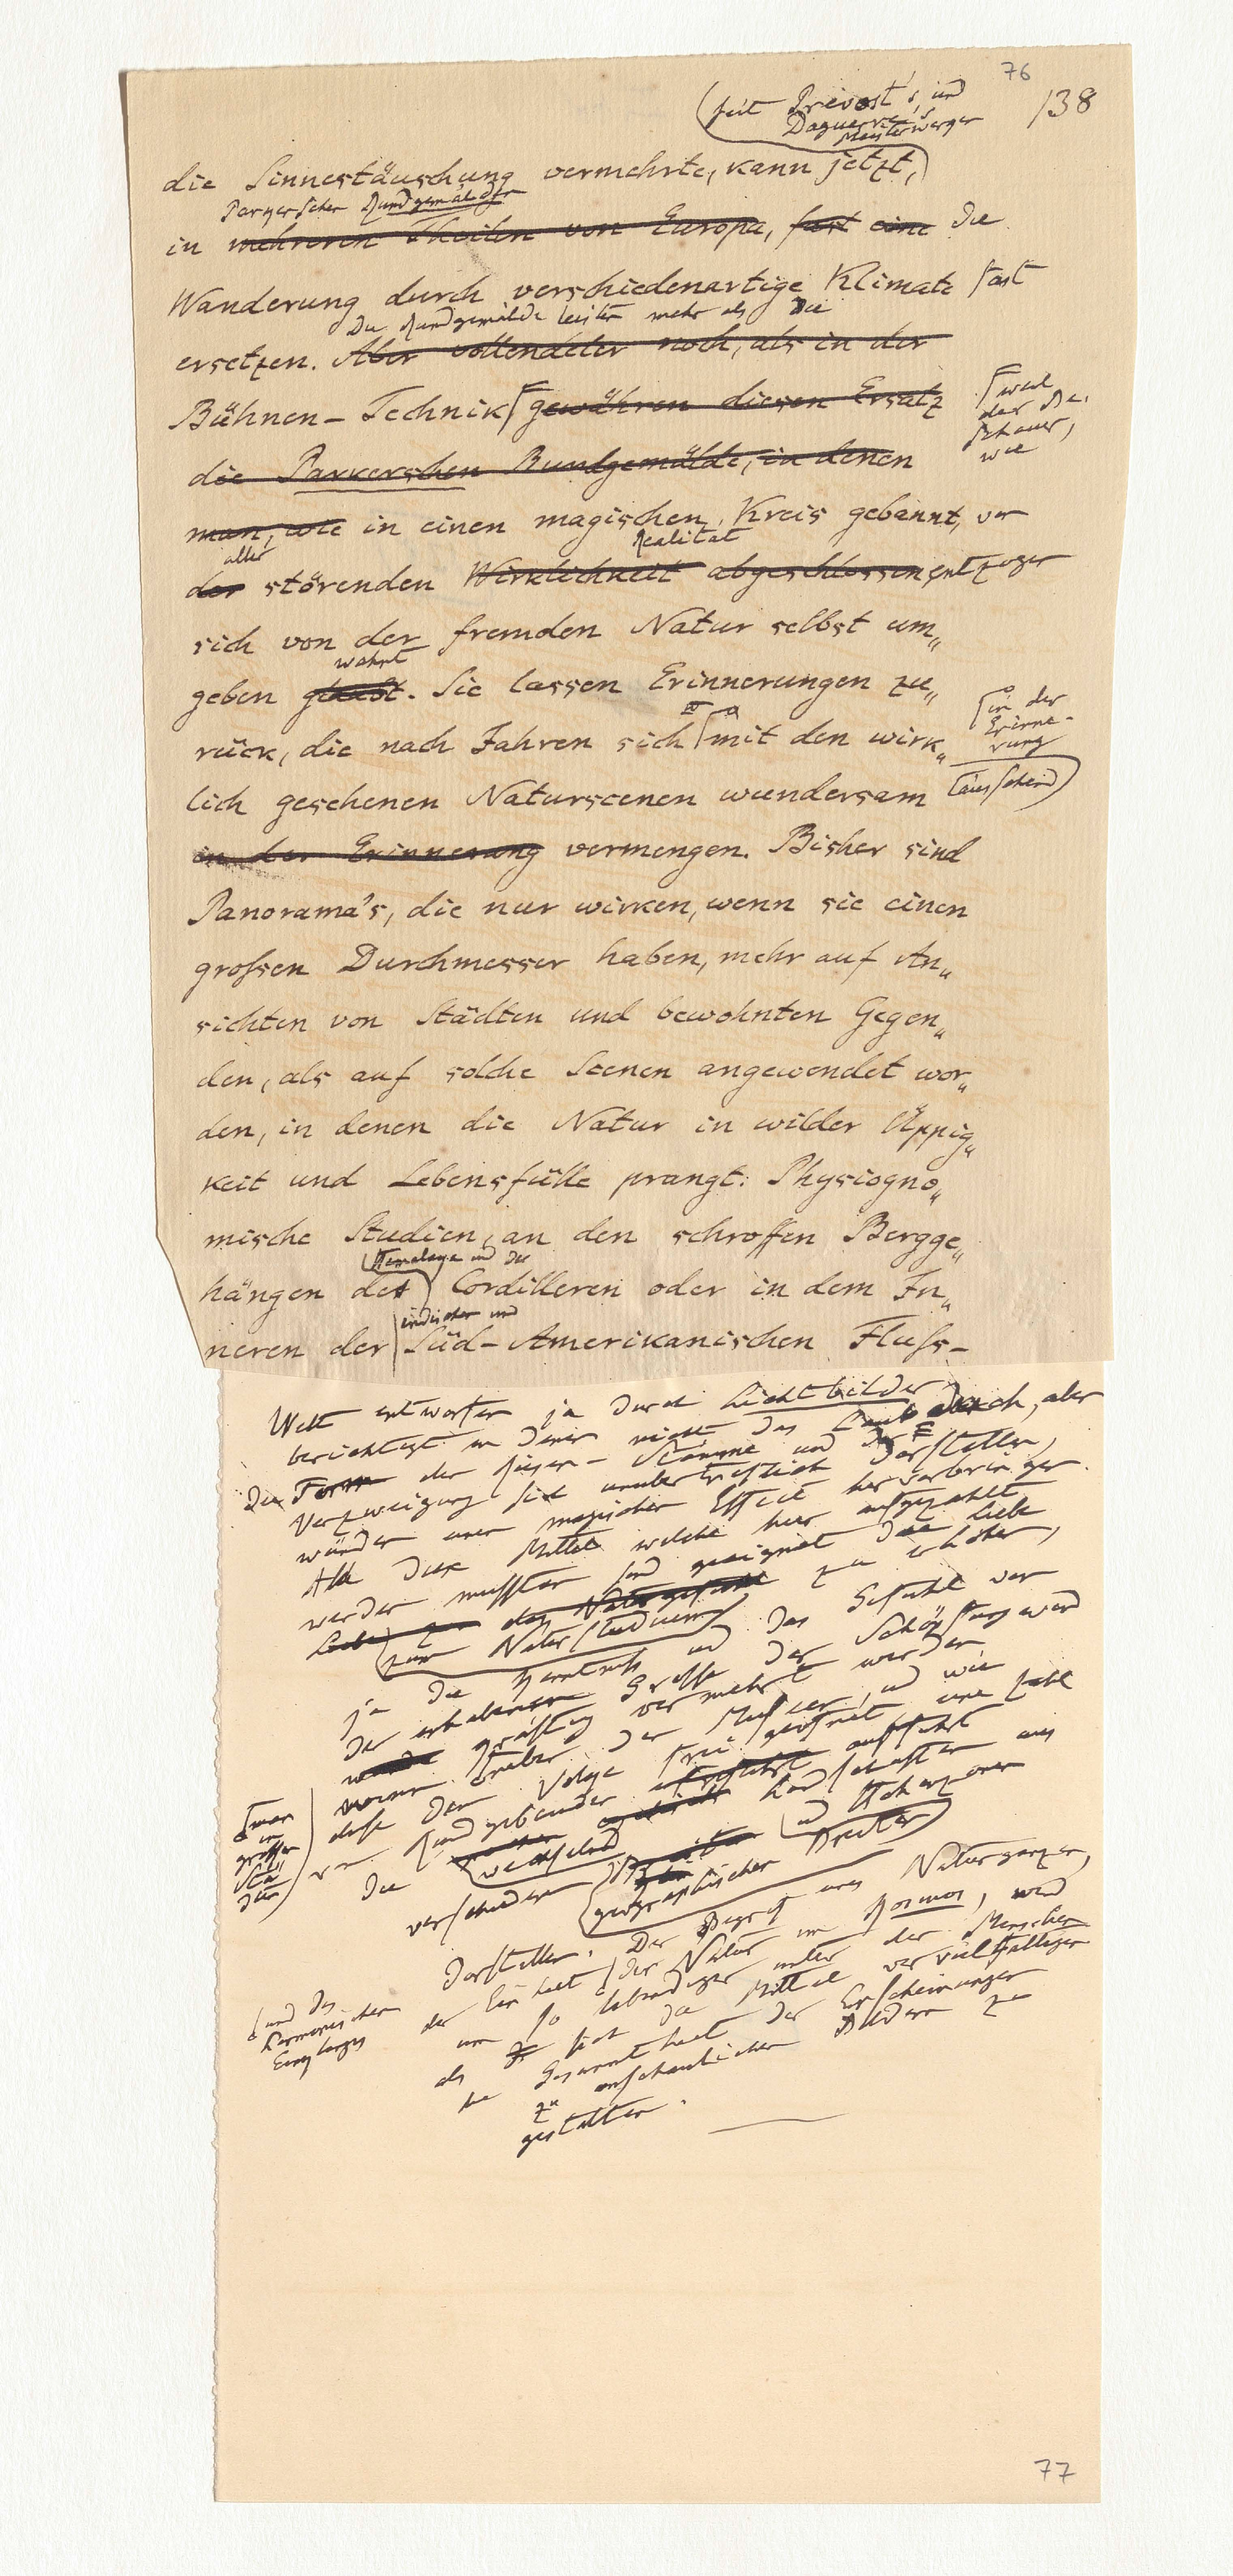 76
138
(seit Prévost's, und
Daguerre's
Meisterwerken
die Sinnestäuschung vermehrte, kann jetzt,)
Parkerscher Rundgemälde
in mehreren Theilen von Europa, fast eine die
Wanderung durch verschiedenartige Klimate fast
Die Rundgemälde leisten mehr als die
ersetzen. Aber vollendeter noch, als in der
Bühnen-Technik gewähren diesen Ersatz
weil
der Be,
schauer,
wie
die Parkerschen Rundgemälde, in denen
man, wie in einen magischen Kreis gebannt, von
aller
Realität
der störenden Wirklichkeit abgeschlossen entzogen
sich von der fremden Natur selbst um„
wähnt
geben glaubt. Sie lassen Erinnerungen zu„
rück, die nach Jahren sich mit den wirk„
in der
Erinne-
rung
täuschend)
lich gesehenen Naturscenen wundersam
in der Erinnerung vermengen. Bisher sind
Panorama's, die nur wirken, wenn sie einen
großen Durchmesser haben, mehr auf An„
sichten von Städten und bewohnten Gegen„
den, als auf solche Scenen angewendet wor„
den, in denen die Natur in wilder Üppig„
keit und Lebensfülle prangt. Physiogno„
mische Studien, an den schroffen Bergge„
Himalaya und der
hängen der) Cordilleren oder in dem In„
indischen und
neren der Süd-Amerikanischen Fluß-
Welt entworfen ja durch Lichtbilder
berichtigt in denen nicht das Laubdach, aber
die Form der Riesen-Stämme und der
Verzweigung sich unübertrefflich darstellen,
würden einen magischen Effect hervorbringen.
Alle diese Mittel welche hier aufgezählt
werden mussten sind geeignet die Liebe
Liebe zu den Naturgefühl zu erhöhen,
zum Naturstudium
ja die Kenntniß und das Gefühl von
der erhabenen Größe der Schöpfung werd
würde kräftig vermehrt werden
wenn neben den Museen, und wie
(man
in
großen
Städ
ten)
diese dem Volke frei geöfnet eine Zahl
von Rundgebäuden aufführt
die wechselnd Landschaften aus
verschiedenen geographischen Breiten
und Höhenzonen
darstellen. Der Begrif eines Naturganzen,
(und des
harmonischen
Einklanges
der Einheit der Natur im Kosmos, wird
um so lebendiger unter den Menschen
als sich die Mittel vervielfältigen
die Gesammtheit der Erscheinungen
zu anschaulichen Bildern zu
gestalten.
77